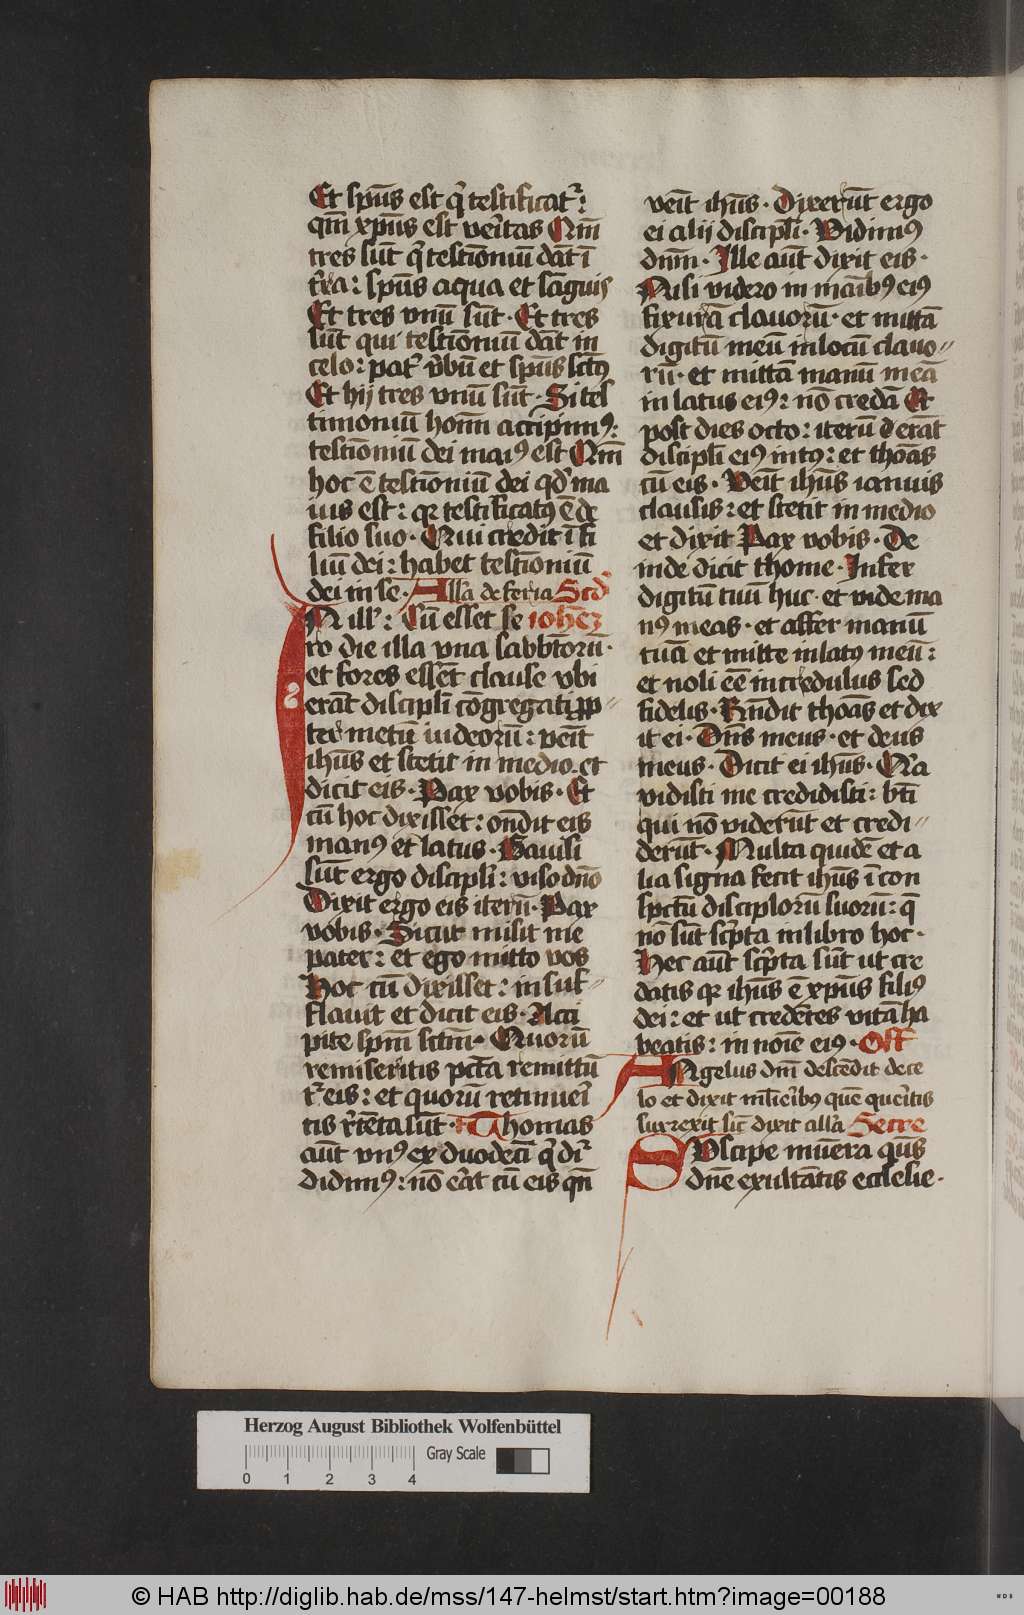 Et sp̄us est q̇ testificat᷑:
qm̄ xp̄us est v̓itas Nm̄
tres sūt q̇ testīoniū dāt ī
t̓ra: sp̄us aqua et sāguis
Et tres vnū sūt· Et tres
sūt qui testīoniū dāt in
celo: pat̓ v̓bū et sp̄us sctꝰ
Et hij tres vnū sūt· Si tes
timoniū hoīm accipimꝰ:
testīoniū dei maiꝰ est Nm̄
hoc ē testīoniū dei qd̓ ma
ius est: qꝛ testificatꝰ ē de
filio suo· Qui credit ī fi
liū dei: habet testīoniū
dei in se· All̄a de feria Scd̓
N ill᷑: Cū esset se ioh̄eꝫ
ro die illa vna sabbt̄orū·
et fores essēt clause vbi
erāt discipl̄i cōgregati ꝓp〃
ter metū iudeorū: veīt
ih̄us et stetit in medio et
dicit eis· Pax vobis· Et
cū hoc dixisset: on̄dit eis
manꝰ et latus· Gauisi
sūt ergo discipl̄i: viso dn̄o
Dixit ergo eis iterū· Pax
vobis· Sicut misit me
pater: et ego mitto vos
Hoc cū dixisset: in suf〃
flauit et dicit eis· Acci
pite spm̄ sctm̄· Quorū
remiseritis pctā remittū
t᷑ eis: et quorū retinuei̓
tis r̓tēta sūt· Thomas
aūt vnꝰ ex duodecī q̇ di᷑
didimꝰ: nō ēat cū eis qn̄
veīt ih̄us· Dixerūt ergo
ei alij discipl̄i· Vidimꝰ
dnm̄· Ille aūt dixit eis·
Nisi videro in maībꝰ eiꝰ
fixurā clauorū· et mittā
digitū meū in locū clauo〃
rū· et mittā manū meā
in latus eiꝰ: nō credā Et
post dies octo: iterū erāt
discipl̄i eiꝰ intꝰ: et thoās
cū eis· Veīt ih̄us ianuis
clausis: et stetit in medio
et dixit Pax vobis· De
inde dicit thome· Infer
digitū tuū huc· et vide ma
nꝰ meas· et affer manū
tuā et mitte in latꝰ meū:
et noli eē incredulus sed
fidelis· Rn̄dit thoās et dix
it ei· Dn̄s meus· et deus
meus· Dicit ei ih̄us· Q̄a
vidisti me credidisti: bt̄i
qui nō viderūt et credi〃
derūt· Multa quidē et a
lia signa fecit ih̄us ī con
spctū disciplorū suorū: q̄
nō sūt sc̓pta in libro hoc·
Hec aūt sc̓pta sūt ut cre
datis qꝛ ih̄us ē xp̄us filiꝰ
dei: et ut credētes vitā ha
beatis: in noīe eiꝰ· Off̄
Angelus dn̄i descēdit de ce
lo et dixit ml̄ieribꝰ quē queritis
surrexit sic̄ dixit all̄a Secre
Suscipe mūera qūs
dn̄e exultātis ecclesie·
Herzog August Bibliothek Wolfenbüttel
Gray Scale
0 1 2 3 4
© HAB http://diglib.hab.de/mss/147-helmst/start.htm?image=00188